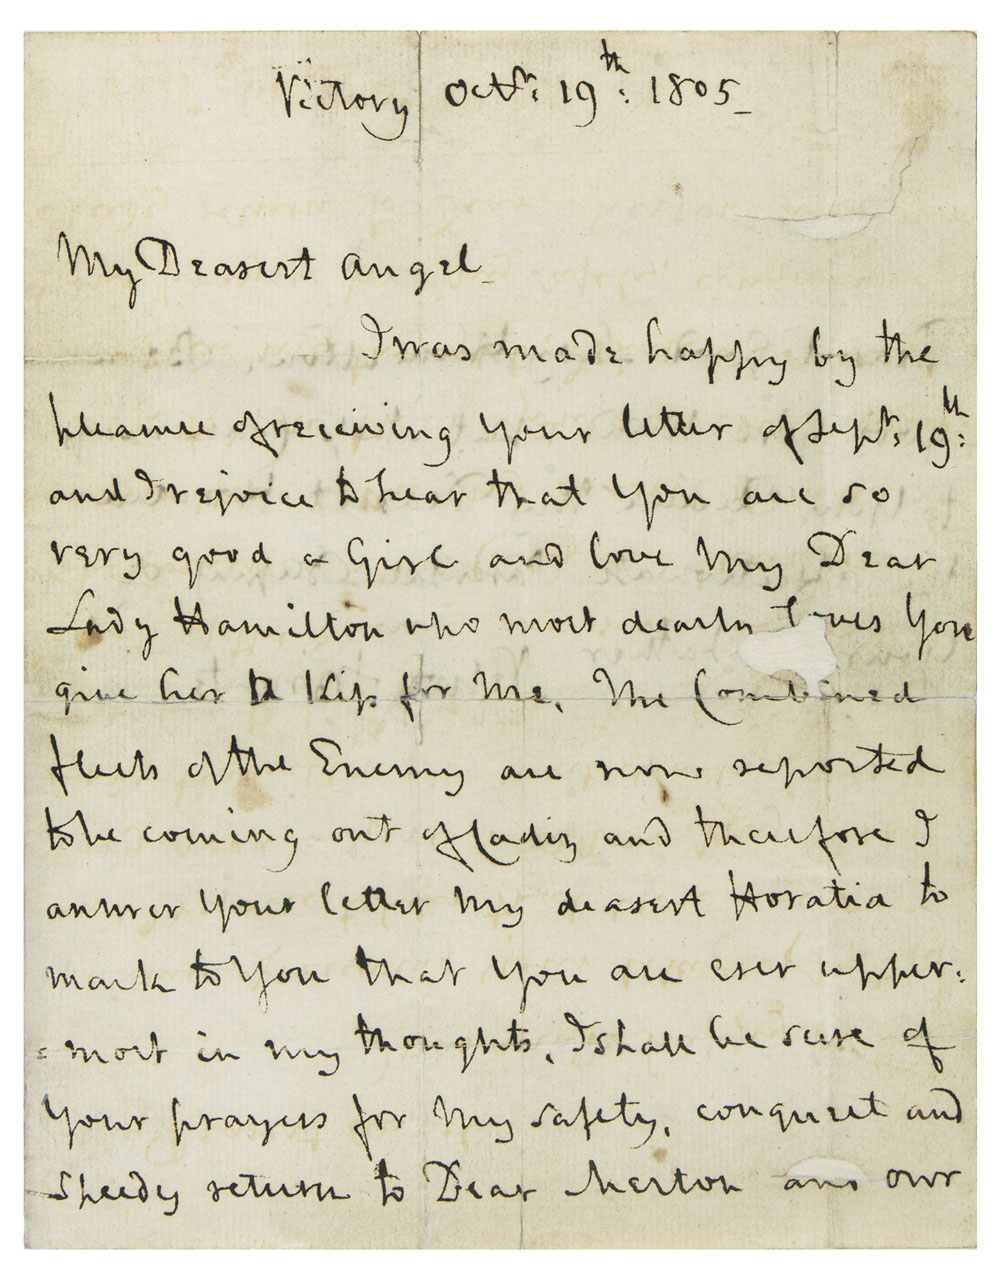 Victory Octr: 19th: 1805_
My Dearest Angel_
I was made happy by the
pleasure of receiving Your letter of Sept: 19th:
and I rejoice to hear that You are so
very good a Girl and love My Dear
Lady Hamilton who most dearly loves You
give her a Kiss for Me, The Combined
fleets of the Enemy are now reported
to be coming out of Cadiz and therefore I
answer Your letter My dearest Horatia to
mark to You that You are ever upper=
=most in my thoughts, I shall be sure of
Your prayers for My safety, conquest and
speedy return to Dear Merton and our